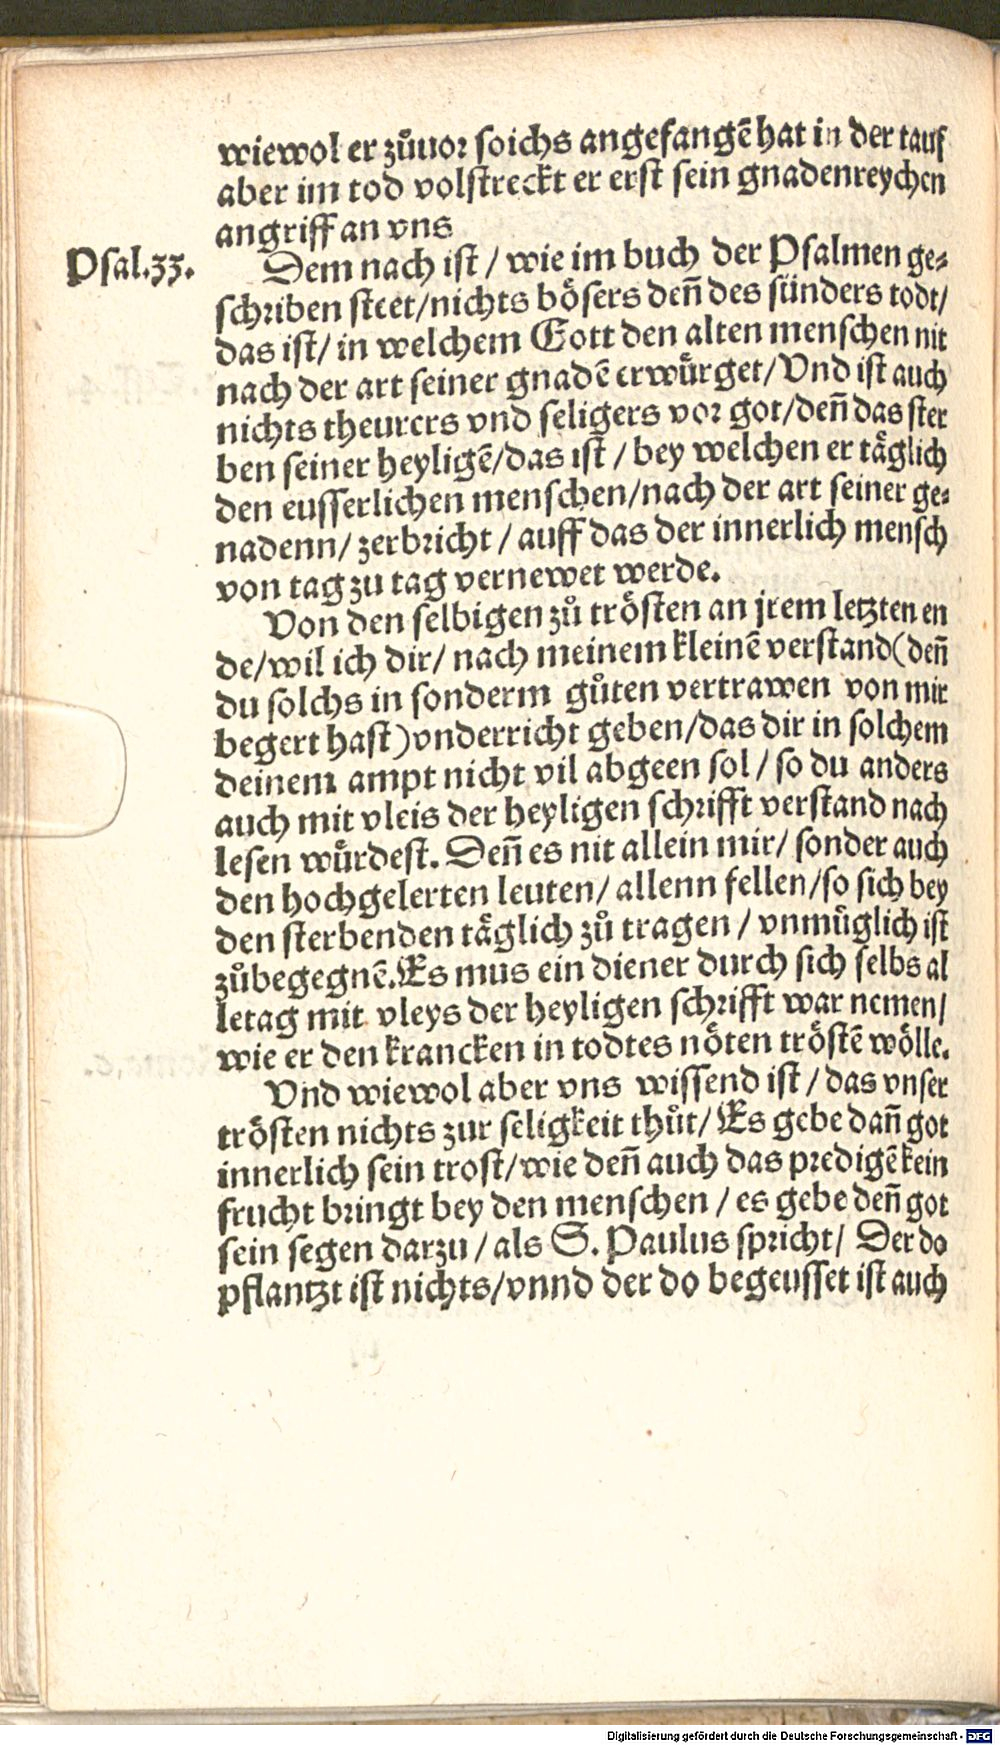 wiewol er zůuor solchs angefangẽ hat in der tauf
aber im tod volstreckt er erst sein gnadenreychen
angriff an vns
Psal.33.
Dem nach ist / wie im buch der Psalmen ge⸗
schriben steet/nichts bösers deñ des sünders todt/
das ist/ in welchem Gott den alten menschen nit
nach der art seiner gnadẽ erwürget/ Vnd ist auch
nichts theurers vnd seligers vor got/deñ das ster
ben seiner heyligẽ/das ist / bey welchen er täglich
den eusserlichen menschen/nach der art seiner ge⸗
nadenn/ zerbricht / auff das der innerlich mensch
von tag zu tag vernewet werde.
Von den selbigen zů trösten an jrem letzten en
de/wil ich dir/ nach meinem kleinẽ verstand(deñ
du solchs in sonderm gůten vertrawen von mir
begert hast)vnderricht geben/das dir in solchem
deinem ampt nicht vil abgeen sol / so du anders
auch mit vleis der heyligen schrifft verstand nach
lesen würdest. Deñ es nit allein mir/ sonder auch
den hochgelerten leuten/ allenn fellen/so sich bey
den sterbenden täglich zů tragen / vnmüglich ist
zůbegegnẽ.Es mus ein diener durch sich selbs al
letag mit vleys der heyligen schrifft war nemen/
wie er den krancken in todtes nöten tröstẽ wölle.
Vnd wiewol aber vns wissend ist / das vnser
trösten nichts zur seligkeit thůt/ Es gebe dañ got
innerlich sein trost/wie deñ auch das predigẽ kein
frucht bringt bey den menschen / es gebe deñ got
sein segen darzu / als S. Paulus spricht/ Der do
pflantzt ist nichts/vnnd der do begeusset ist auch
Digitalisierung gefördert durch die Deutsche Forschungsgemeinschaft - DFG